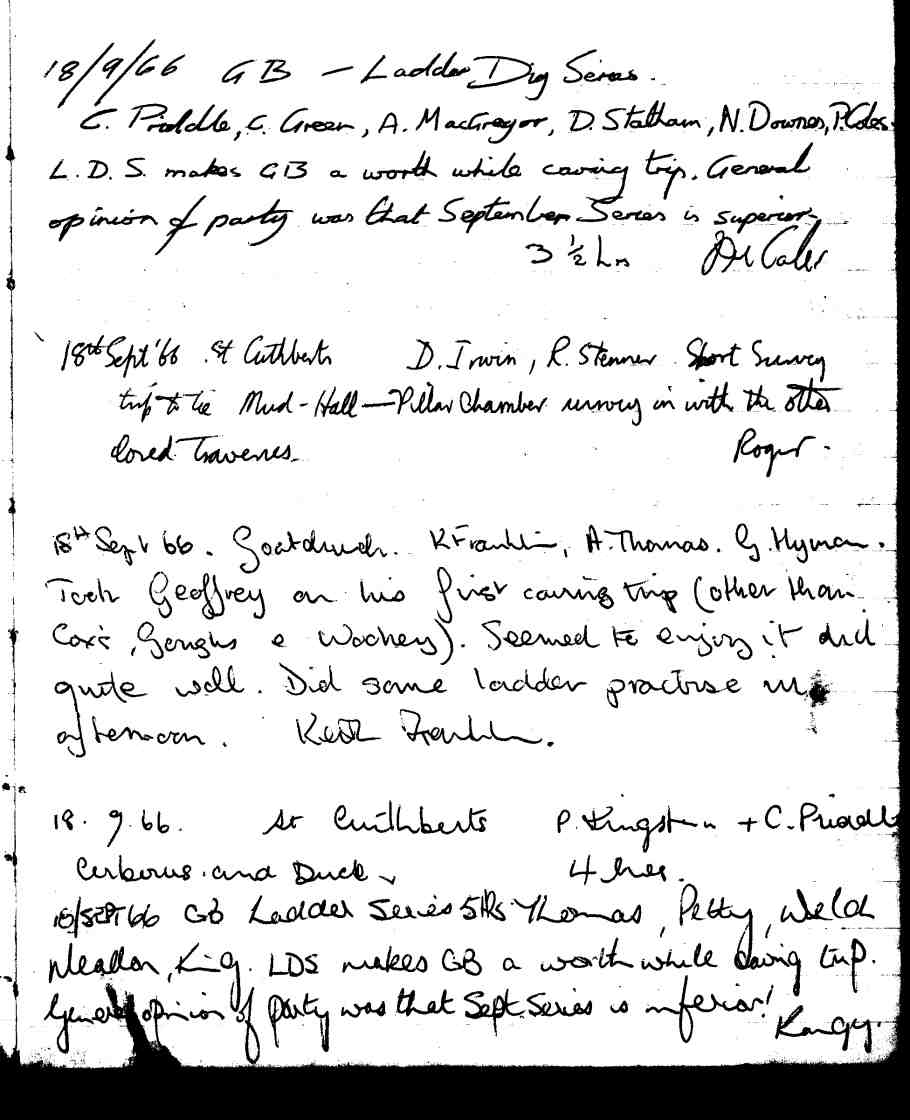 18/9/66 GB - Ladder Dig Series.
C. Priddle, C. Green, A. MacGregor, D. Statham, N. Downes, P. Coles.
L.D.S. makes GB a worth while caving trip. General
opinion of party was that September Series is superior.
3 ½ hrs
18th Sept '66 St Cuthberts D. Irwin, R. Stenner Short Survey
trip to tie Mud-Hall—Pillar Chamber survey in with the other
closed Traverses.
Roger.
18th Sept 66. Goatchurch. K Franklin, A. Thomas. G. Hyman.
Took Geoffrey on his first caving trip (other than
Cox's, Goughs & Wookey). Seemed to enjoy it did
quite well. Did some ladder practise in
afternoon. Keith Franklin.
18. 9. 66. St Cuthberts P. Kingston + C. Priddle
Cerberus and Duck 4 hrs.
18/SEPT 66 GB Ladder Series 5 Hrs Thomas, Petty, Welch
King. LDS makes GB a worth while caving trip.
General opinion of party was that Sept. Series is inferior!
Kangy.